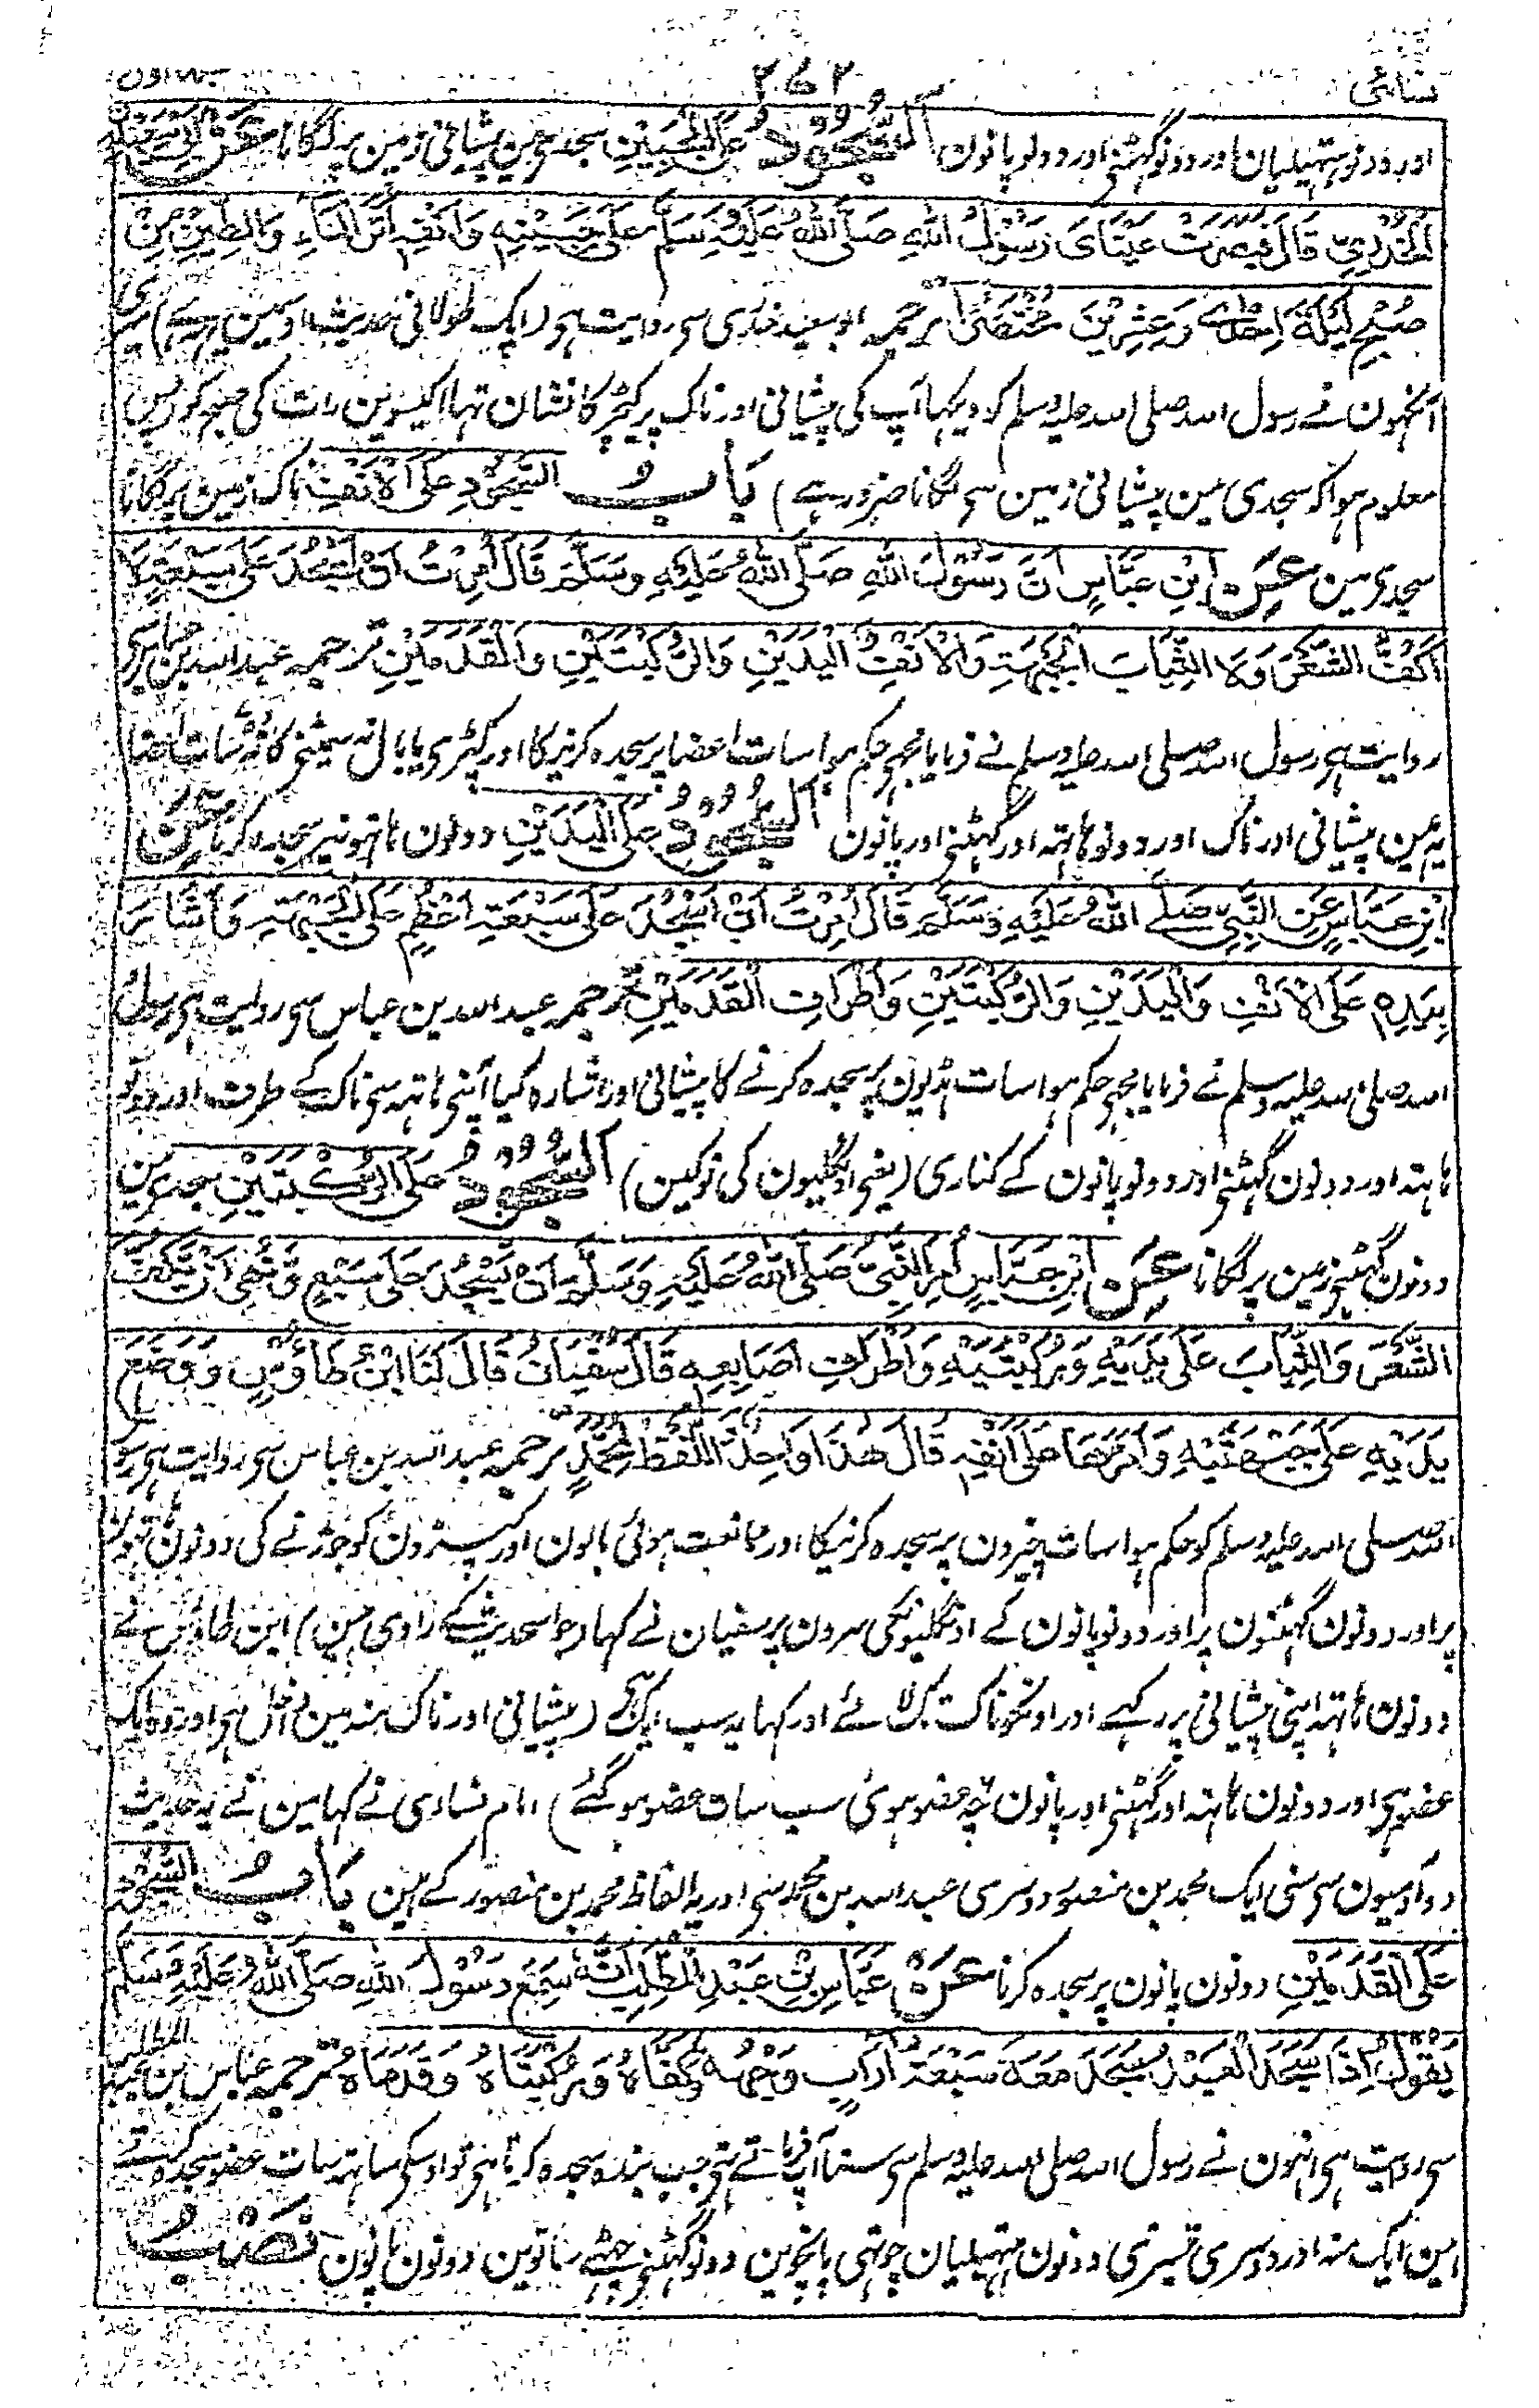 نسائی ۲۷۲ جلد اول
اور دونو ہتھیلیان اور دونو گہٹنی اور دونو پانون اَلسُّجُوْدُ عَلَی الْجَبِیْنِ سجدی مین پیشانی زمین پر لگانا عَنْ اَبِیْ سَعِیْدٍ
الْخُدْرِیِّ قَالَ فَبَصُرَتْ عَیْنَایَ رَسُوْلَ اللّٰہِ صَلَّی اللّٰہُ عَلَیْہِ وَسَلَّمَ عَلٰی جَبِیْنِہٖ وَاَنْفِہٖ اَثَرُ الْمَاءِ وَالطِّیْنِ مِنْ
صُبْحِ لَیْلَۃِ اِحْدٰی وَعِشْرِیْنَ مُخْتَصَرٌ ترجمہ ابو سعید خدری سی روایت ہی (ایک طولانی حدیث اوسمین ہے) میری
انہون نے رسول اللہ صلی اللہ علیہ وسلم کو دیکہا آپ کی پیشانی اور ناک پر کیچڑ کا نشان تہا اکیسوین رات کی صبح کو (پس
معلوم ہوا کہ سجدی مین پیشانی زمین سی لگانا ضرور ہے) بَابُ السُّجُوْدِ عَلَی الْاَنْفِ ناک زمین پر لگانا
سجدی مین عَنِ ابْنِ عَبَّاسٍ اَنَّ رَسُوْلَ اللّٰہِ صَلَّی اللّٰہُ عَلَیْہِ وَسَلَّمَ قَالَ اُمِرْتُ اَنْ اَسْجُدَ عَلٰی سَبْعَۃٍ لَا
اَکُفَّ الشَّعْرَ وَلَا الثِّیَابَ الْجَبْہَۃِ وَالْاَنْفِ الْیَدَیْنِ وَالرُّکْبَتَیْنِ وَالْقَدَمَیْنِ ترجمہ عبد اللہ بن عباس سی
روایت ہی رسول اللہ صلی اللہ علیہ وسلم نے فرمایا مجہی حکم ہوا سات اعضا پر سجدہ کرنیکا اور کپٹری یا بال نہ سمیٹنی کا وہ سات اعضا
یہ ہین پیشانی اور ناک اور دونو ہاتہہ اور گہٹنی اور پانون اَلسُّجُوْدُ عَلَی الْیَدَیْنِ دونون ہاتہونپر سجدہ کرنا عَنِ
ابْنِ عَبَّاسٍ عَنِ النَّبِیِّ صَلَّی اللّٰہُ عَلَیْہِ وَسَلَّمَ قَالَ اُمِرْتُ اَنْ اَسْجُدَ عَلٰی سَبْعَۃِ اَعْظُمٍ عَلَی الْجَبْہَۃِ وَاَشَارَ
بِیَدِہٖ عَلَی الْاَنْفِ وَالْیَدَیْنِ وَالرُّکْبَتَیْنِ وَاَطْرَافِ الْقَدَمَیْنِ ترجمہ عبد اللہ بن عباس سی روایت ہی رسول
اللہ صلی اللہ علیہ وسلم نے فرمایا مجہی حکم ہوا سات ہڈیون پر سجدہ کرنے کا پیشانی اور اشارہ کیا اپنی ہاتہہ سی ناک کے طرف اور دونو
ہاتہہ اور دونون گہٹنی اور دونو پانون کے کناری (یعنی اونگلیون کی نوکین) اَلسُّجُوْدُ عَلَی الرُّکْبَتَیْنِ سجدی مین
دونون گہٹنی زمین پر لگانا عَنِ ابْنِ عَبَّاسٍ اُمِرَ النَّبِیُّ صَلَّی اللّٰہُ عَلَیْہِ وَسَلَّمَ اَنْ یَّسْجُدَ عَلٰی سَبْعٍ وَنُہِیَ اَنْ یَّکْفِتَ
الشَّعْرَ وَالثِّیَابَ عَلٰی یَدَیْہِ وَرُکْبَتَیْہِ وَاَطْرَافِ اَصَابِعِہٖ قَالَ سُفْیَانُ قَالَ لَنَا ابْنُ طَاوٗسٍ وَوَضَعَ
یَدَیْہِ عَلٰی جَبْہَتِہٖ وَاَمَرَّھَا عَلٰی اَنْفِہٖ قَالَ ھٰذَا وَاحِدٌ اَللَّفْظُ لِمُحَمَّدٍ ترجمہ عبد اللہ بن عباس سی روایت ہی رسول
اللہ صلی اللہ علیہ وسلم کو حکم ہوا سات چیزون پر سجدہ کرنیکا اور ممانعت ہوئی بالون اور کپڑون کو جوڑنے کی دونون ہاتہون
پر اور دونون گہٹنون پر اور دونو پانون کے اونگلیونکی سرون پر سفیان نے کہا (جو اس حدیث کے راوی ہین) ابن طاؤس نے
دونون ہاتہہ اپنی پیشانی پر رکہے اور اونکو ناک تک لائے اور کہا یہ سب ایک ہی (پیشانی اور ناک منہ مین داخل ہی اور وہ ایک
عضو ہی اور دونون ہاتہہ اور گہٹنی اور پانون چہ عضو ہوئی سب سات عضو ہو گئے) امام نسائی نے کہا مین نے یہ حدیث
دو آدمیون سی سنی ایک محمد بن منصور دوسری عبد اللہ بن محمد سی اور یہ الفاظ محمد بن منصور کے ہین بَابُ السُّجُوْدِ
عَلَی الْقَدَمَیْنِ دونون پانون پر سجدہ کرنا عَنْ عَبَّاسِ بْنِ عَبْدِ الْمُطَّلِبِ اَنَّہٗ سَمِعَ رَسُوْلَ اللّٰہِ صَلَّی اللّٰہُ عَلَیْہِ وَسَلَّمَ
یَقُوْلُ اِذَا سَجَدَ الْعَبْدُ سَجَدَ مَعَہٗ سَبْعَۃُ اٰرَابٍ وَجْہُہٗ وَکَفَّاہُ وَرُکْبَتَاہُ وَقَدَمَاہُ ترجمہ عباس بن عبد المطلب
سی روایت ہی انہون نے رسول اللہ صلی اللہ علیہ وسلم سی سنا آپ فرماتے تہی جب بندہ سجدہ کرتا ہی تو اوسکی ساتہہ سات عضو سجدہ کرتے
ہین ایک منہ اور دوسری تیسری دونون ہتہیلیان چوتہی پانچوین دونو گہٹنی چہٹے ساتوین دونون پانون نَصْبُ